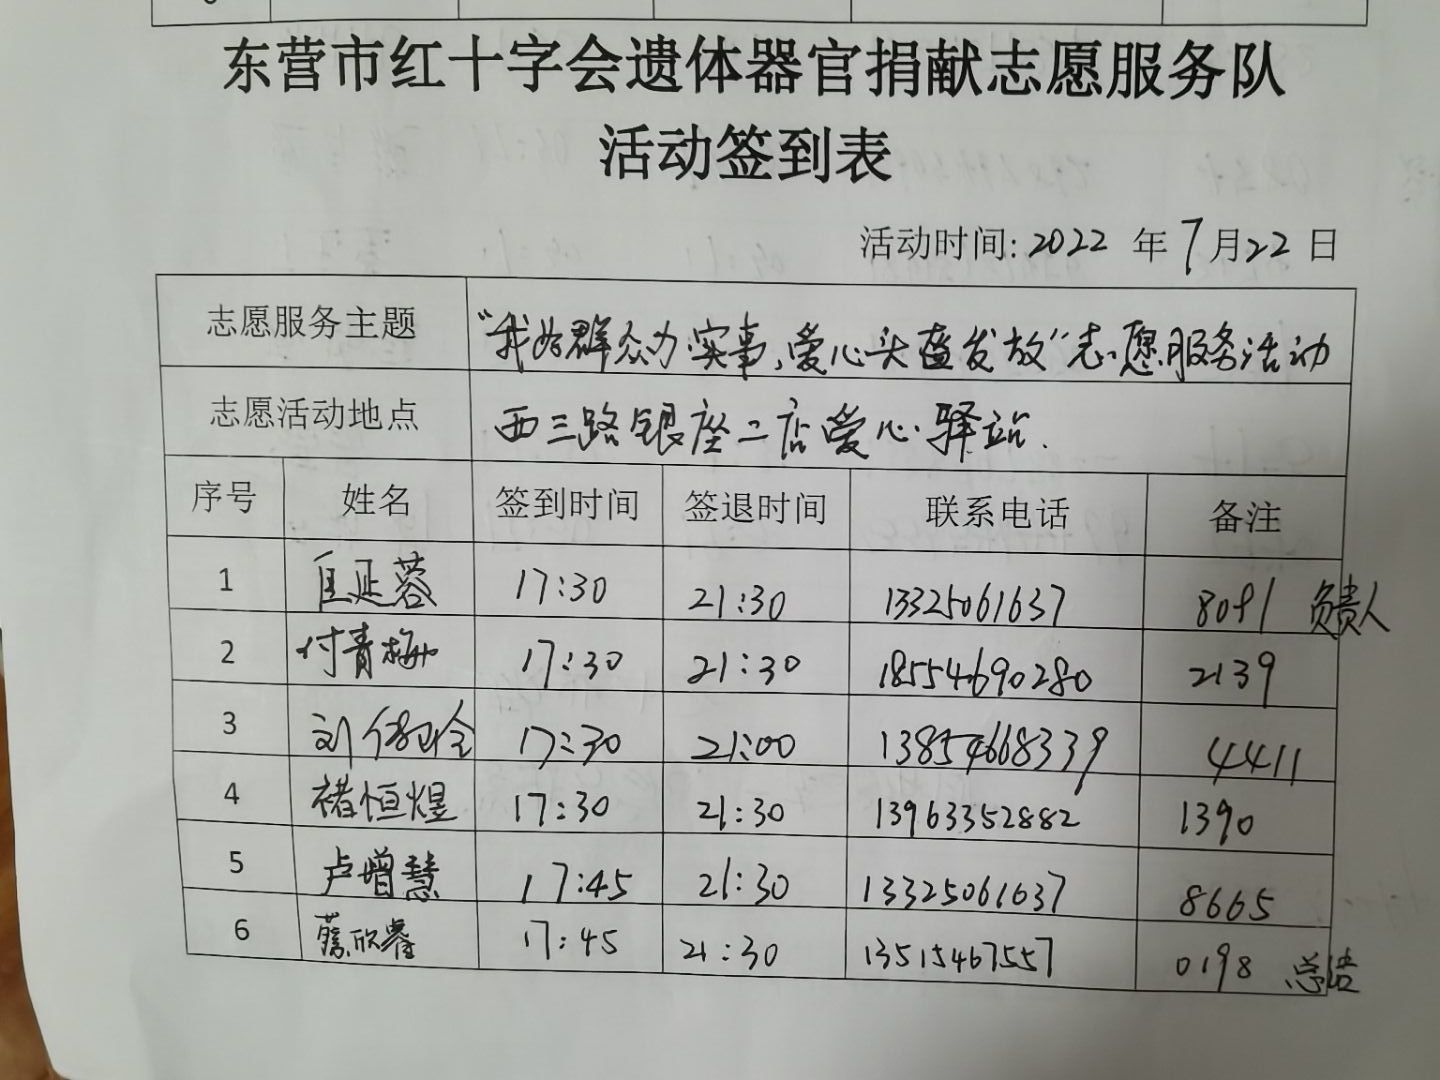 东营市红十字会遗体器官捐献志愿服务队
活动签到表
活动时间: 2022 年 7 月 22 日
志愿服务主题 "我为群众办实事,爱心头盔发放"志愿服务活动
志愿活动地点 西三路银座二店爱心驿站.
序号 姓名 签到时间 签退时间 联系电话 备注
1 匡延蓉 17:30 21:30 13325061637 8091 负责人
2 付青梅 17:30 21:30 18554690280 2139
3 刘 17:30 21:00 13854668339 4411
4 褚恒煜 17:30 21:30 13963352882 1390
5 卢增慧 17:45 21:30 13325061637 8665
6 欣睿 17:45 21:30 13515467557 0198 总结